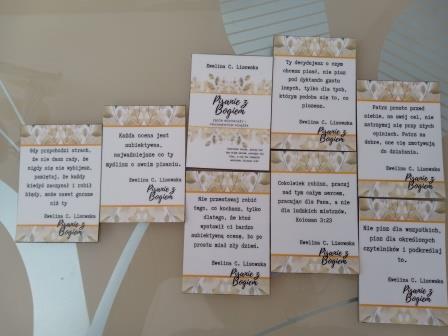 Gdy przychodzi strach,
że nie dasz rady, że
nigdy się nie wybijesz,
pamiętaj, że każdy
kiedyś zaczynał i robił
błędy, może nawet gorsze
niż ty
Ewelina C. Lisowska
Pisanie z
Bogiem
Każda ocena jest
subiektywna,
najważniejsze co ty
myślisz o swoim pisaniu.
Ewelina C. Lisowska
Pisanie z
Bogiem
Ewelina C. Lisowska
Pisanie z
Bogiem
Ty decydujesz o czym
chcesz pisać, nie pisz
pod dyktando gustu
innych, tylko dla tych,
którym podoba się to, co
piszesz.
Ewelina C. Lisowska
Pisanie z
Bogiem
Patrz prosto przed
siebie, na swój cel, nie
zatrzymuj się przy złych
opiniach. Patrz na
dobre, one cię zmotywują
do działania.
Ewelina C. Lisowska
Pisanie z
Bogiem
Nie przestawaj robić
tego, co kochasz, tylko
dlatego, że ktoś
wystawił ci bardzo
subiektywną ocenę, bo po
prostu miał zły dzień.
Ewelina C. Lisowska
Pisanie z
Bogiem
Cokolwiek robisz, pracuj
nad tym całym sercem,
pracując dla Pana, a nie
dla ludzkich mistrzów,
Kolosan 3:23
Ewelina C. Lisowska
Pisanie z
Bogiem
Nie pisz dla wszystkich,
pisz dla określonych
czytelników i podkreślaj
to.
Ewelina C. Lisowska
Pisanie z
Bogiem